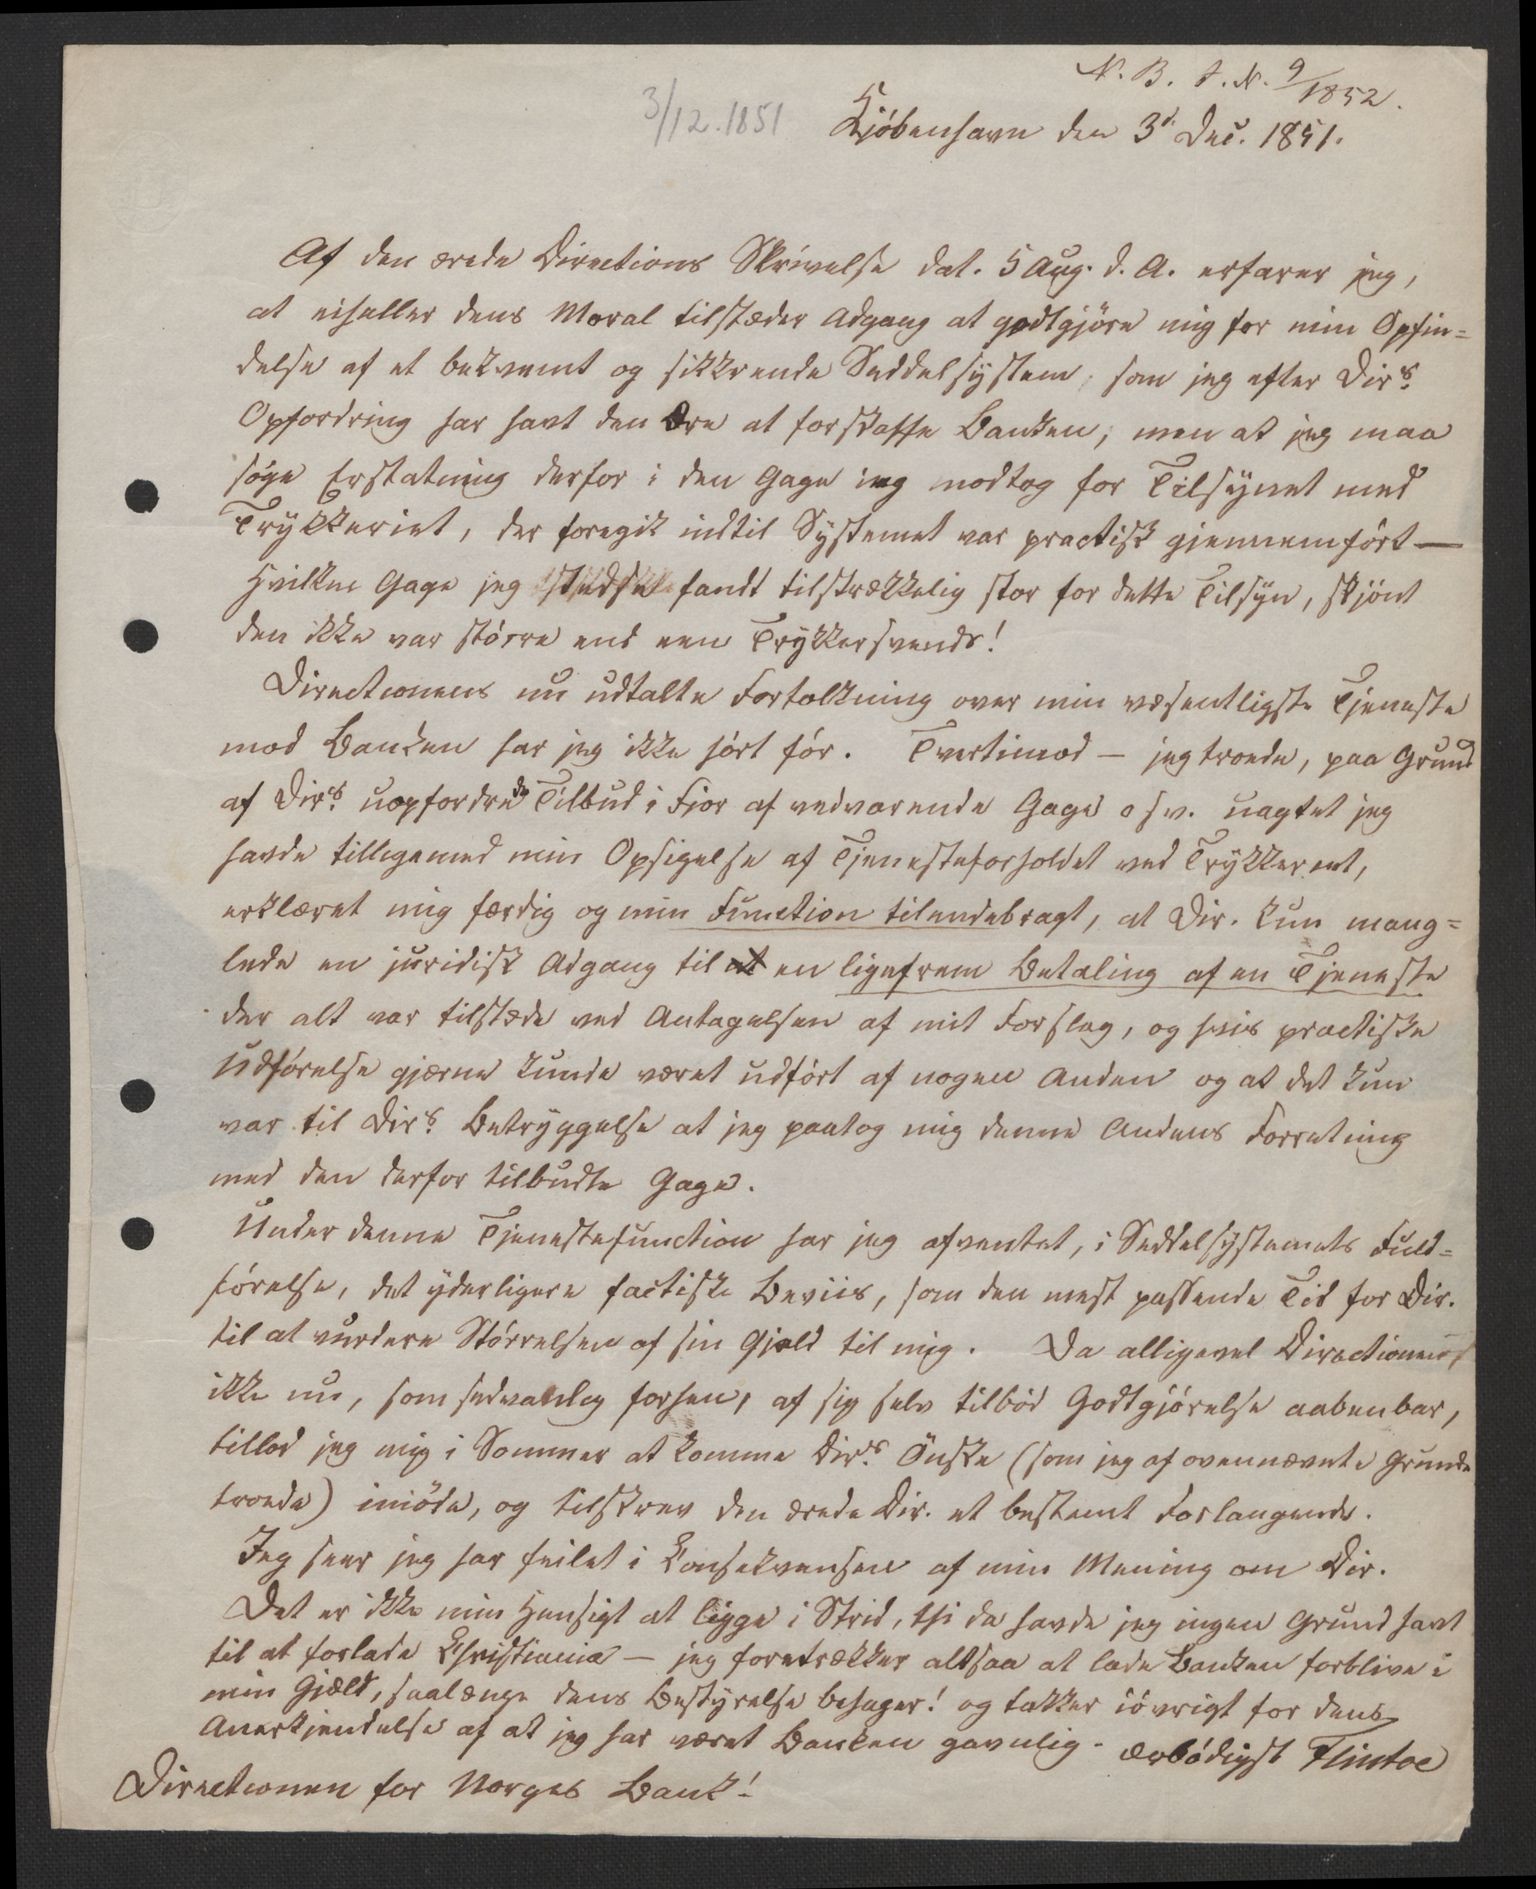 N. B. J. N. 9/1852.
3/12.1851
Kjöbenhavn den 3d Dec. 1851.
Af den ærede Directions Skrivelse dat. 5 Aug. d. A. erfarer jeg,
at eiheller dens Moral tilstæder Adgang at godtgjöre mig for min Opfin=
delse af et bekvemt og sikkrende Seddelsystem, som jeg efter Dirs.
Opfordring har havt den Ære at forskaffe Banken; men at jeg maa
söge Erstatning derfor i den Gage jeg modtog for Tilsynet med
Trykkeriet, der foregik indtil Systemet var practisk gjennemfört —
hvilken Gage jeg stedse fandt tilstrækkelig stor for dette Tilsyn, skjönt
den ikke var större end een Trykkersvends!
Directionens nu udtalte Fortolkning over min væsentligste Tjeneste
mod Banken har jeg ikke hört för. Tvertimod — jeg troede, paa Grund
af Dirs. uopfordrede Tilbud i Fjor af vedvarende Gage osv. uagtet jeg
havde tilligemed min Opsigelse af Tjenesteforholdet ved Trykkeriet,
erklæret mig færdig og min Function tilendebragt, at Dir. kun mang=
lede en juridisk Adgang til at en ligefrem Betaling af en Tjeneste
der alt var tilstede ved Antagelsen af mit Forslag, og hvis practiske
Udförelse gjærne kunde været udfört af nogen Anden og at det kun
var til Dirs. Betryggelse at jeg paatog mig denne Andens Forretning
med den derfor tilbudte Gage.
Under denne Tjenestefunction har jeg afventet, i Seddelsystemets Fuld=
förelse, det yderligere factiske Beviis, som den mest passende Tid for Dir.
til at vurdere Störrelsen af sin Gjæld til mig. Da alligevel Directionen
ikke nu, som sedvanlig forhen, af sig selv tilböd Godtgjörelse aabenbar,
tillod jeg mig i Sommer at komme Dirs. Önske (som jeg af ovennævnte Grunde
troede) imöde, og tilskrev den ærede Dir. et bestemt Forlangende.
Jeg seer jeg har feilet i Konsekvensen af min Mening om Dir.
Det er ikke min Hensigt at ligge i Strid, thi da havde jeg ingen Grund havt
til at forlade Christiania — jeg foretrækker altsaa at lade Banken forblive i
min Gjæld, saalænge dens Bestyrelse behager! og takker iövrigt for dens
Anerkjendelse af at jeg har været Banken gavnlig. ærbödigst Flintoe
Directionen for Norges Bank!